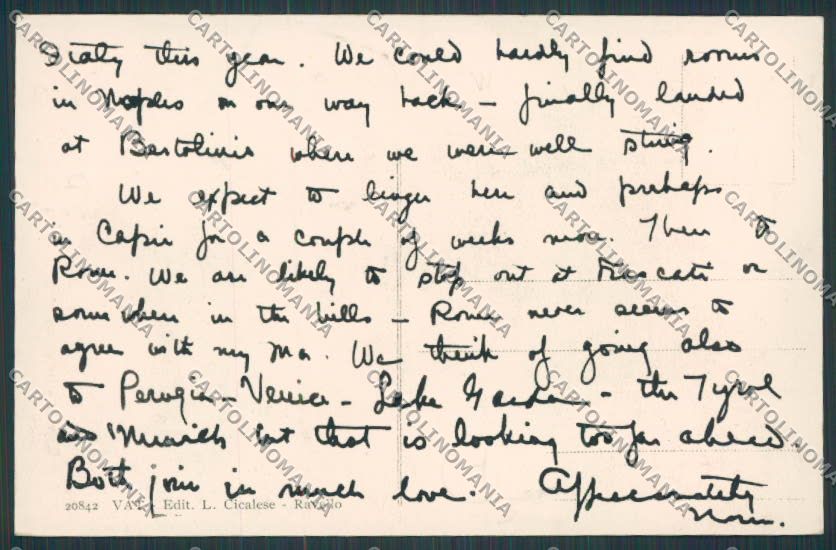 Italy this year. We could hardly find rooms
in Naples on our way back - finally landed
at Bertolinis where we were well stung.
We expect to linger here and perhaps
in Capri for a couple of weeks more. Then to
Rome. We are likely to stop out at Frascati or
some where in the hills - Rome never seems to
agree with my Ma. We think of going also
to Perugia - Venice - Lake Garda - the Tyrol
and Munich but that is looking too far ahead.
Both join in much love. Affectionately
Norm.
20842 VAT - Edit. L. Cicalese - Ravello
CARTOLINOMANIA